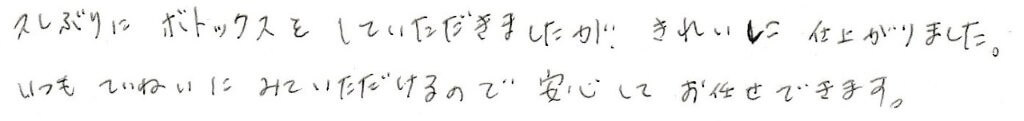 久しぶりに ボトックスを していただきましたが、きれいに 仕上がりました。
いつも ていねいに みていただけるので 安心して お任せできます。